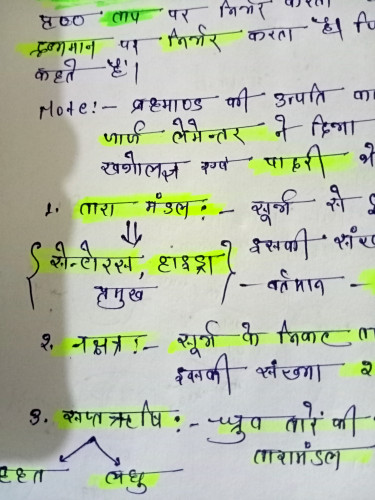 ताप पर निर्भर करता
द्रव्यमान पर निर्भर करता है।
कहते हैं।
Note:- ब्रह्माण्ड की उत्पति का
जार्ज लेमेन्तर ने दिया
खगोलज्ञ एवं पादरी थे
1. तारा मंडल:- सूर्य से
इसकी संख्
{ सेन्टोरस, हाइड्रा }
प्रमुख - वर्तमान -
2. नक्षत्र:- सूर्य के निकट
इनकी संख्या 2
3. सप्तऋषि:- ध्रुव तारें की
तारामंडल
वृहत लघु